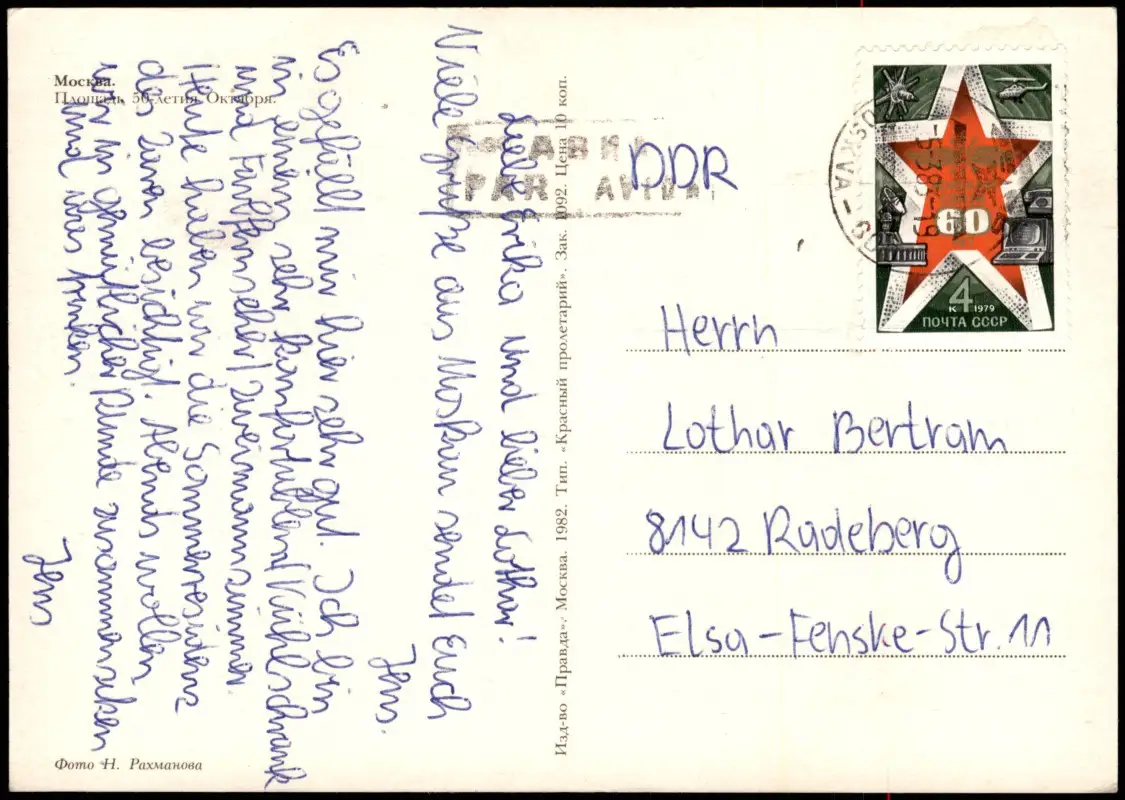 Москва.
Площадь 50-летия Октября.
Liebe Erika und lieber Lothar!
Viele Grüße aus Moskau sendet Euch
Jens.
Es gefällt mir hier sehr gut. Ich bin
in einem sehr komfortablem (Kühlschrank
und Farbfernseher) Zweimannzimmer.
Heute haben wir die Sommerresidenz
des Zaren besichtigt. Abends wollen
wir in gemütlicher Runde zusammensitzen
und was trinken.
Jens
Фото Н. Рахманова
Изд-во «Правда». Москва. 1982. Тип. «Красный пролетарий». Зак. 1092. Цена 10 коп.
АВИА
PAR AVION
DDR
MOSKVA
60
4 К 1979
ПОЧТА СССР
Herrn
Lothar Bertram
8142 Radeberg
Elsa-Fenske-Str. 11